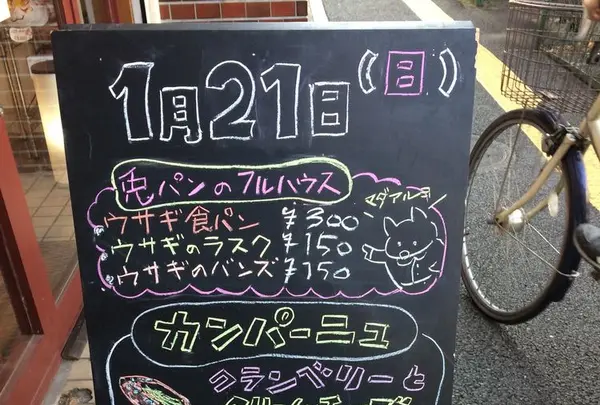 1月21日(日)
兎パンのフルハウス
マダアルヨ
ウサギ食パン ¥300
ウサギのラスク ¥150
ウサギのバンズ ¥150
カンパーニュ
クランベリーと
クリームチーズ